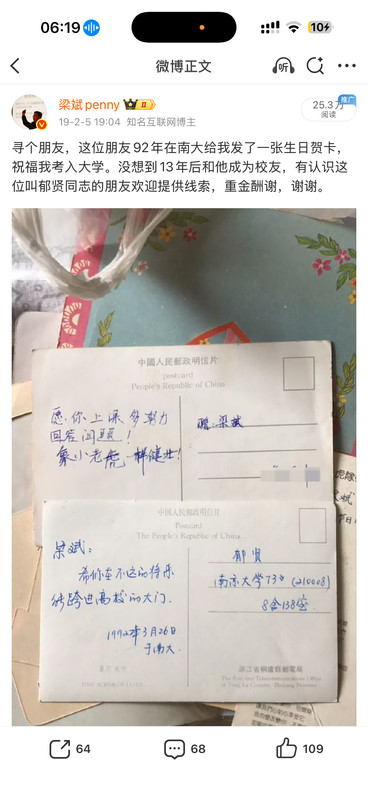 06:19
10
微博正文
听
梁斌penny
II
推广
25.3万
阅读
19-2-5 19:04 知名互联网博主
寻个朋友，这位朋友92年在南大给我发了一张生日贺卡，
祝福我考入大学。没想到13年后和他成为校友，有认识这
位叫郁贤同志的朋友欢迎提供线索，重金酬谢，谢谢。
中國人民郵政明信片
postcard
People's Republic of China
愿你上课多努力
回答问题！
象小老虎一样健壮！
赠：梁斌
中國人民郵政明信片
Postcard
The People's Republic of China
梁斌：
希你在不远的将来
能跨进高校的大门．
1992年3月26日
于南大．
郁贤
南京大学73# (210008)
8舍138室
浙江省桐廬縣郵電局
64
68
109